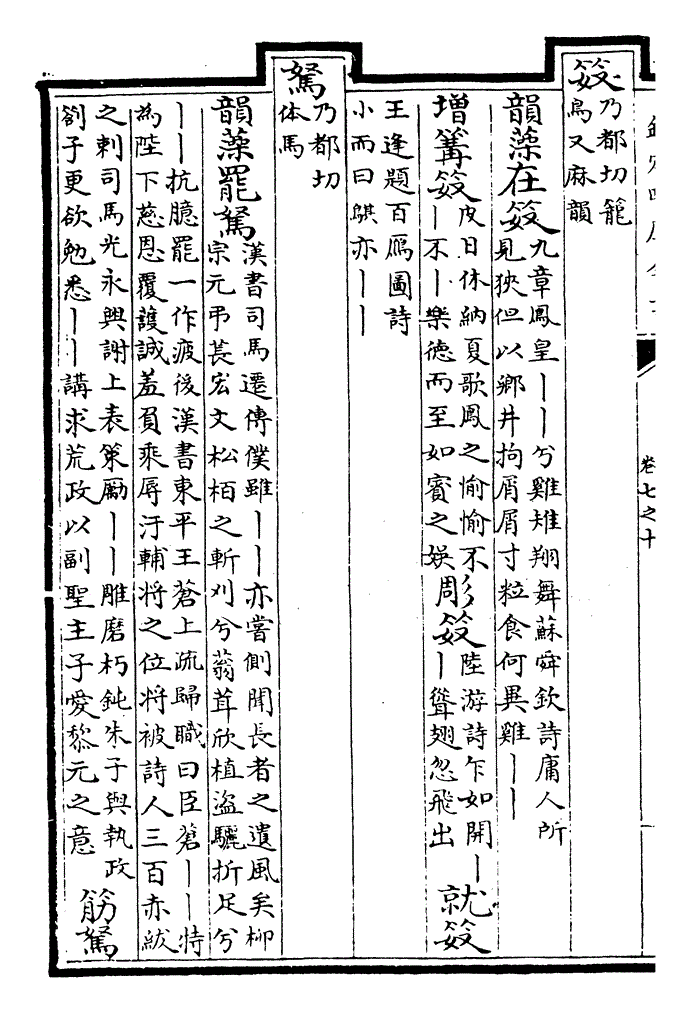 卷七之十
笯
乃都切籠
鳥又麻韻
韻藻在笯
九章鳳皇丨丨兮雞雉翔舞蘇舜欽詩庸人所
見狹但以鄉井拘屑屑寸粒食何異雞丨丨
增篝笯
皮日休納夏歌鳳之愉愉不
丨不丨樂德而至如賓之娱
彫笯
陸游詩乍如開丨
丨聳翅忽飛出
就笯
王逢題百鴈圖詩
小而曰䳑亦丨丨
駑
乃都切
体馬
韻藻罷駑
漢書司馬遷傳僕雖丨丨亦嘗側聞長者之遺風矣柳
宗元弔萇宏文松栢之斬刈兮蓊茸欣植盜驪折足兮
丨丨抗臆罷一作疲後漢書東平王蒼上疏歸職曰臣蒼丨丨特
為陛下慈恩覆護誠羞負乘辱汙輔將之位將被詩人三百赤紱
之刺司馬光永興謝上表策勵丨丨雕磨朽鈍朱子與執政
劄子更欲勉悉丨丨講求荒政以副聖主子愛黎元之意
筋駑